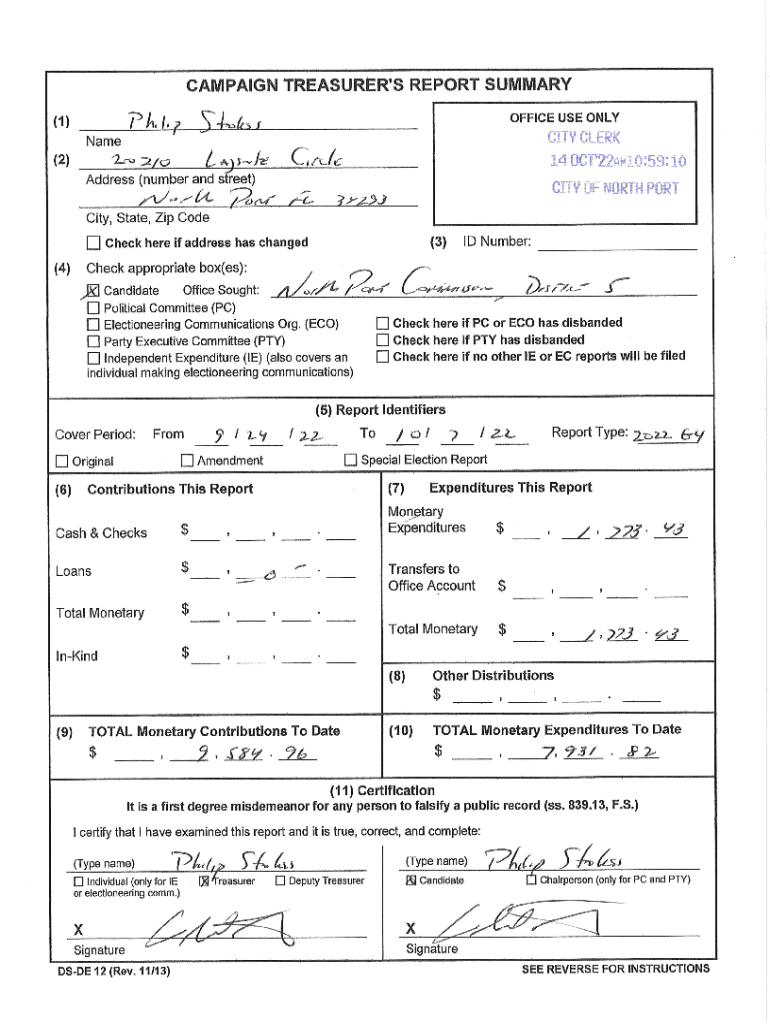 CAMPAIGN TREASURER'S REPORT SUMMARY
(1) Philip Stokes
Name
OFFICE USE ONLY
CITY CLERK
14 OCT'22AM10:59:10
CITY OF NORTH PORT
(2) 20210 Circle
Address (number and street)
North Port FL 34293
City, State, Zip Code
☐ Check here if address has changed
(3) ID Number:
(4) Check appropriate box(es):
☒ Candidate Office Sought: North Port Commission District 5
☐ Political Committee (PC)
☐ Electioneering Communications Org. (ECO) ☐ Check here if PC or ECO has disbanded
☐ Party Executive Committee (PTY) ☐ Check here if PTY has disbanded
☐ Independent Expenditure (IE) (also covers an ☐ Check here if no other IE or EC reports will be filed
individual making electioneering communications)
(5) Report Identifiers
Cover Period: From 9 / 24 / 22 To 10 / 7 / 22 Report Type: 2022 G4
☐ Original ☐ Amendment ☐ Special Election Report
(6) Contributions This Report
Cash & Checks $ , , .
Loans $ , -0- .
Total Monetary $ , , .
In-Kind $ , , .
(7) Expenditures This Report
Monetary
Expenditures $ , 1,273.43
Transfers to
Office Account $ , , .
Total Monetary $ , 1,273.43
(8) Other Distributions
$ , , .
(9) TOTAL Monetary Contributions To Date
$ , 9,584.96
(10) TOTAL Monetary Expenditures To Date
$ , 7,931.82
(11) Certification
It is a first degree misdemeanor for any person to falsify a public record (ss. 839.13, F.S.)
I certify that I have examined this report and it is true, correct, and complete:
(Type name) Philip Stokes
☐ Individual (only for IE ☒ Treasurer ☐ Deputy Treasurer
or electioneering comm.)
X
Signature
(Type name) Philip Stokes
☒ Candidate ☐ Chairperson (only for PC and PTY)
X
Signature
DS-DE 12 (Rev. 11/13)
SEE REVERSE FOR INSTRUCTIONS